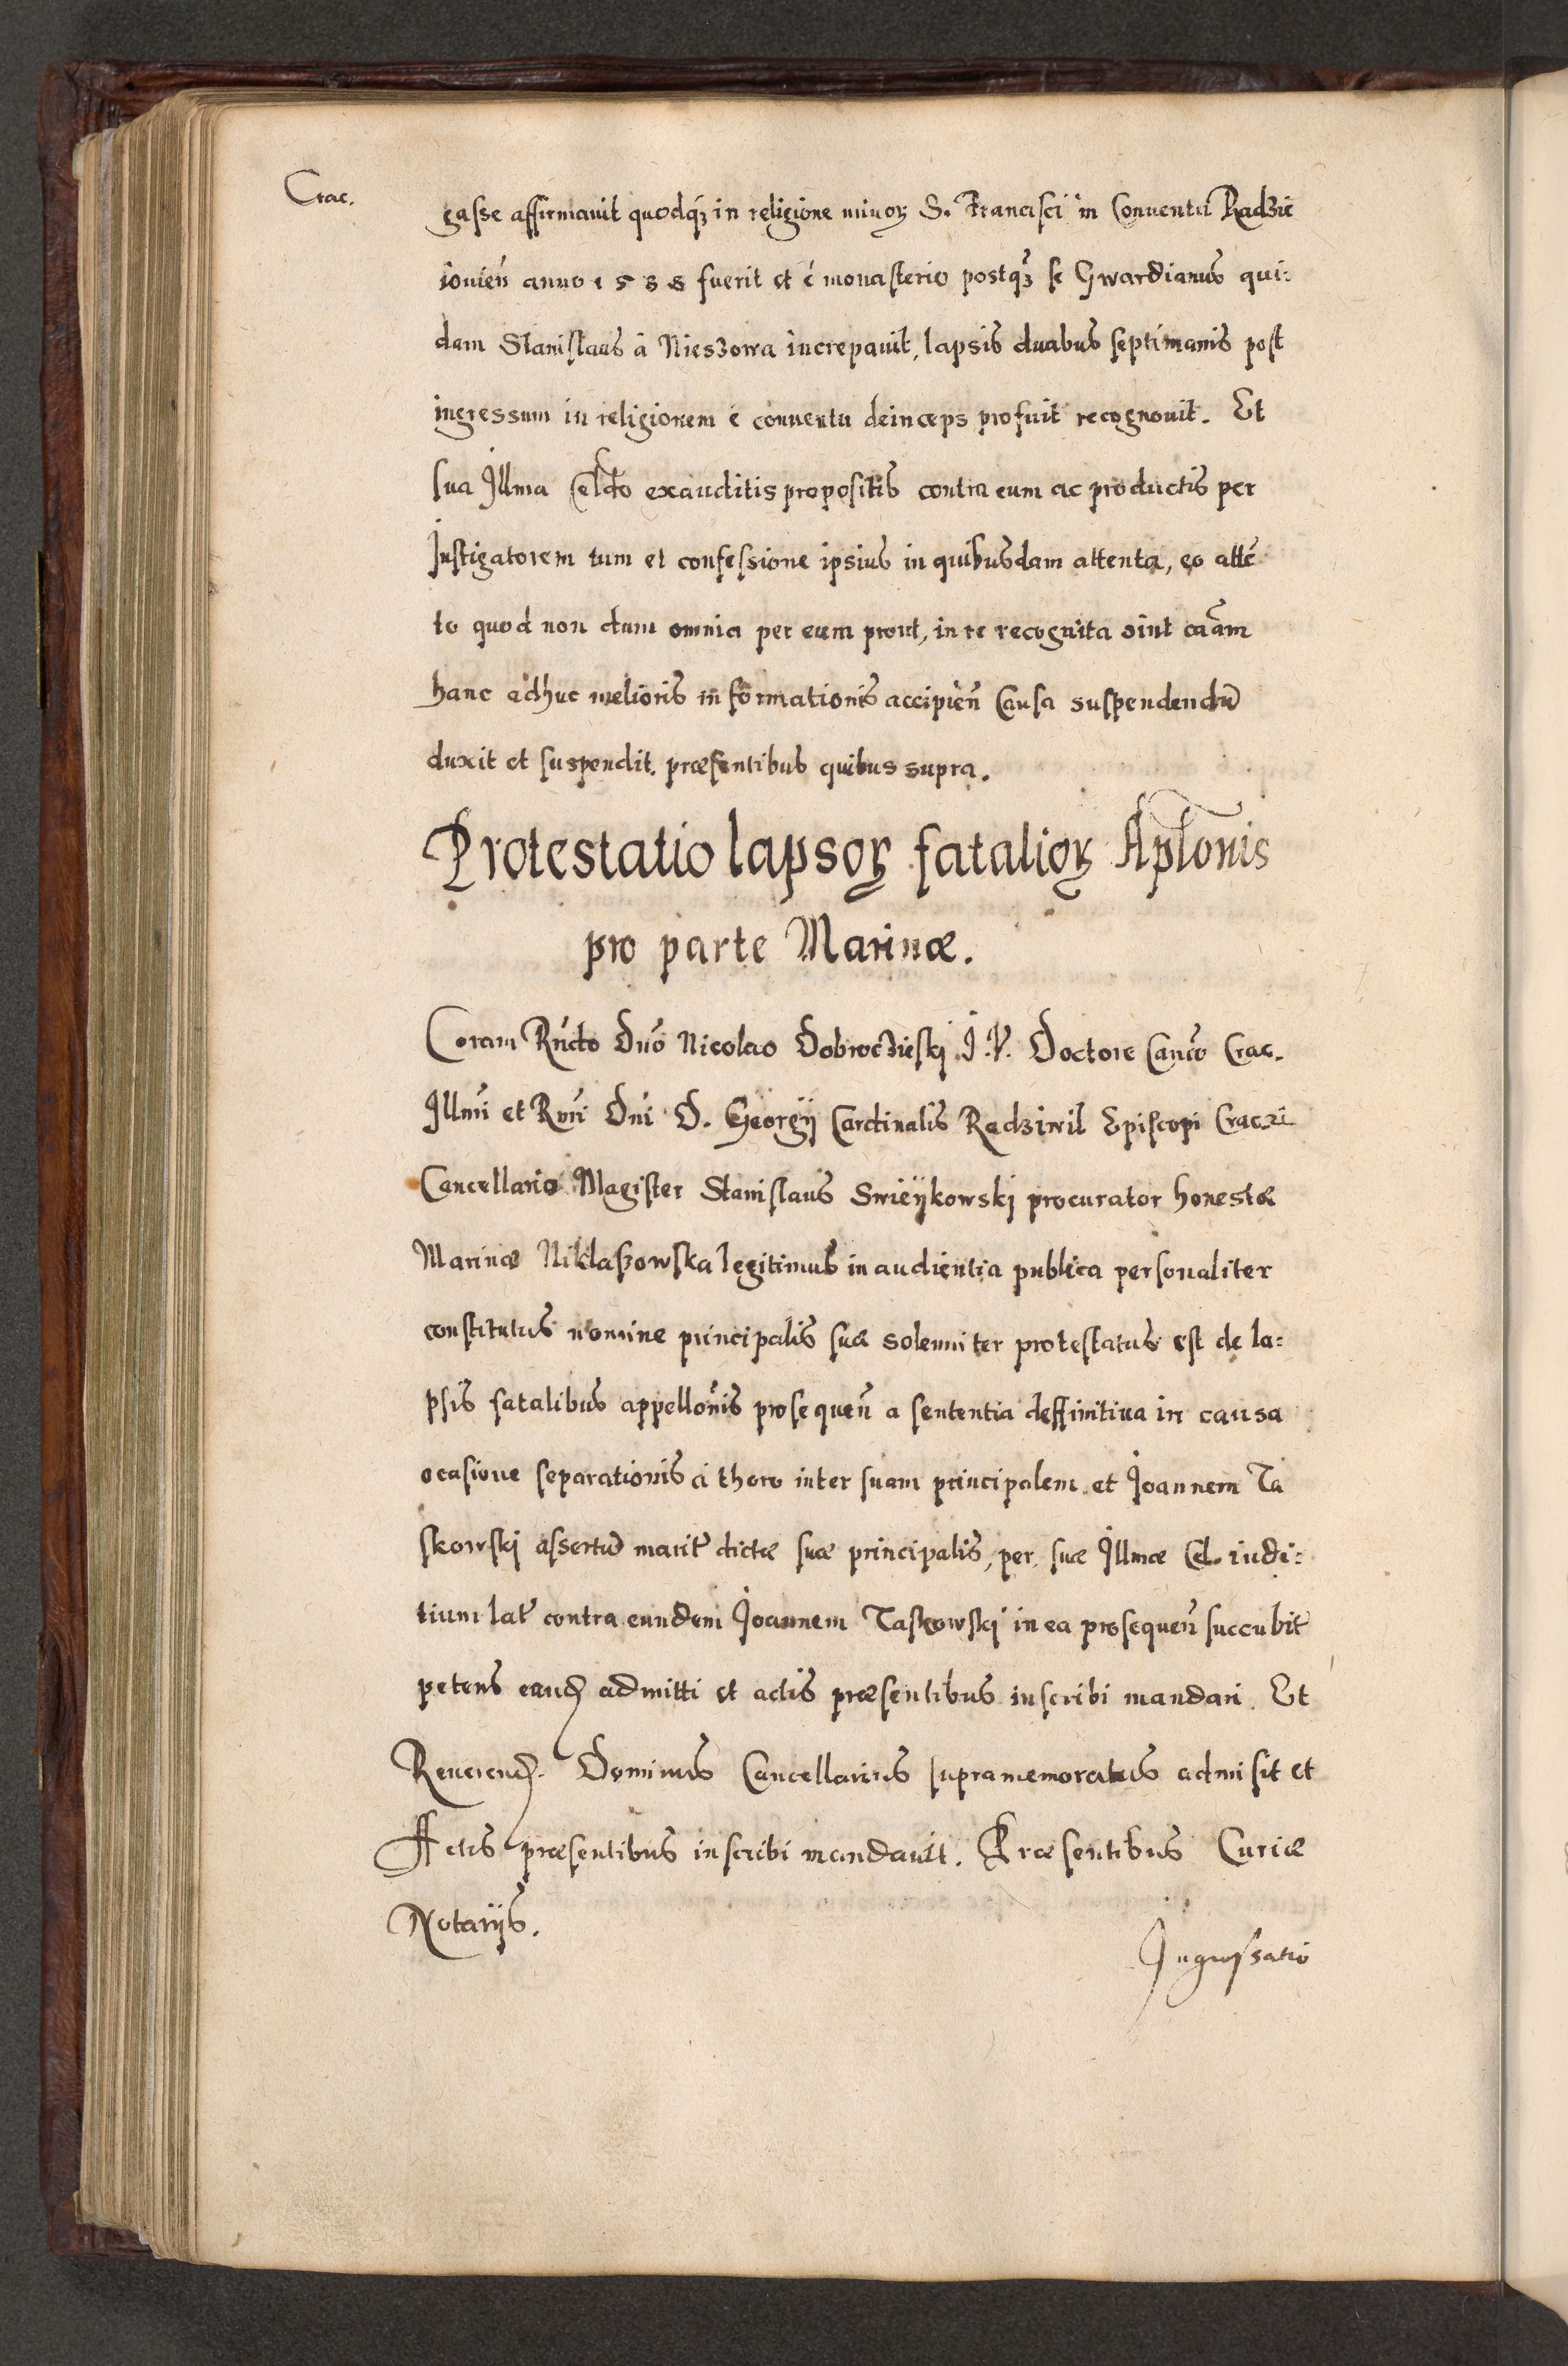 Crac.
gasse affirmauit quodq₃ in religione minoꝝ S. Francisci in Conuentu Radzie
iouień anno 1588 fuerit et é monasterio postq₃ se Gwardianus qui:
dam Stanislaus à Nieszowa increpauit, lapsis duabus septimanis post
ingressum in religionem é conuentu deinceps profuit recognouit. Et
sua Illma Celdo exauditis propositis contra eum ac productis per
Instigatorem tum et confessione ipsius in quibusdam attenta, eo attē
to quod non dum omnia per eum prout, in re recognita sint cāam
hanc adhuc melioris informationis accipień Causa suspendendū
duxit et suspendit. præsentibus quibus supra.
Protestatio lapsoꝝ fatalioꝝ Aplonis
pro parte Marinæ.
Coram Rńdo Dnō Nicolao Dobroczieski J. V. Doctore Canćo Crac.
Illmi et Rmi Dni D. Georgij Cardinalis Radziwil Episcopi Crac:
Cancellario Magister Stanislaus Swieykowski procurator honestæ
Marinæ Niklaszowska legitimus in audientia publica personaliter
constitutus nomine principalis suæ solemniter protestatus est de la:
psis fatalibus appellonis prosequeń a sententia deffinitiua in causa
ocasione separationis à thoro inter suam principalem et Joannem Ta
skowski assertū marit̃ dictæ suæ principalis, per suæ Illmæ Cel. iudi:
tium lat̃ contra eundem Joannem Taskowski in ea prosequeń succubit
petens eand̃ admitti et actis præsentibus inscribi mandari. Et
Reuerend̃. Dominus Cancellarius supramemoratus admisit et
Actis præsentibus inscribi mandauit. Præsentibus Curiæ
Notarijs.
Ingrossatio